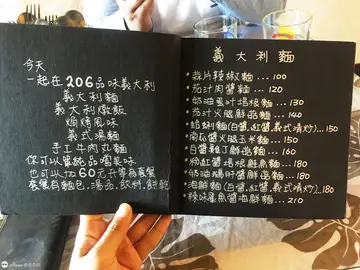 今天
一起在206品味義大利
義大利麵
義大利燉飯
焗烤風味
義式湯麵
手工牛肉丸麵
你可以單純品嚐美味
也可以加60元升等為套餐
套餐有麵包.湯品.飲料.甜點
義大利麵
蒜片辣椒麵...100
茄汁肉醬麵...120
奶油蛋汁培根麵...130
茄汁火腿鮮菇麵...140
蛤蜊麵(白醬,紅醬,義式清炒)...150
南瓜醬火腿玉米麵...150
白醬雞丁鮮菇麵...160
粉紅醬培根鮭魚麵...180
奶油鵝肝醬鮮菇麵...180
海鮮麵(白醬,紅醬,義式清炒)...180
辣味墨魚醬油鮮麵...210